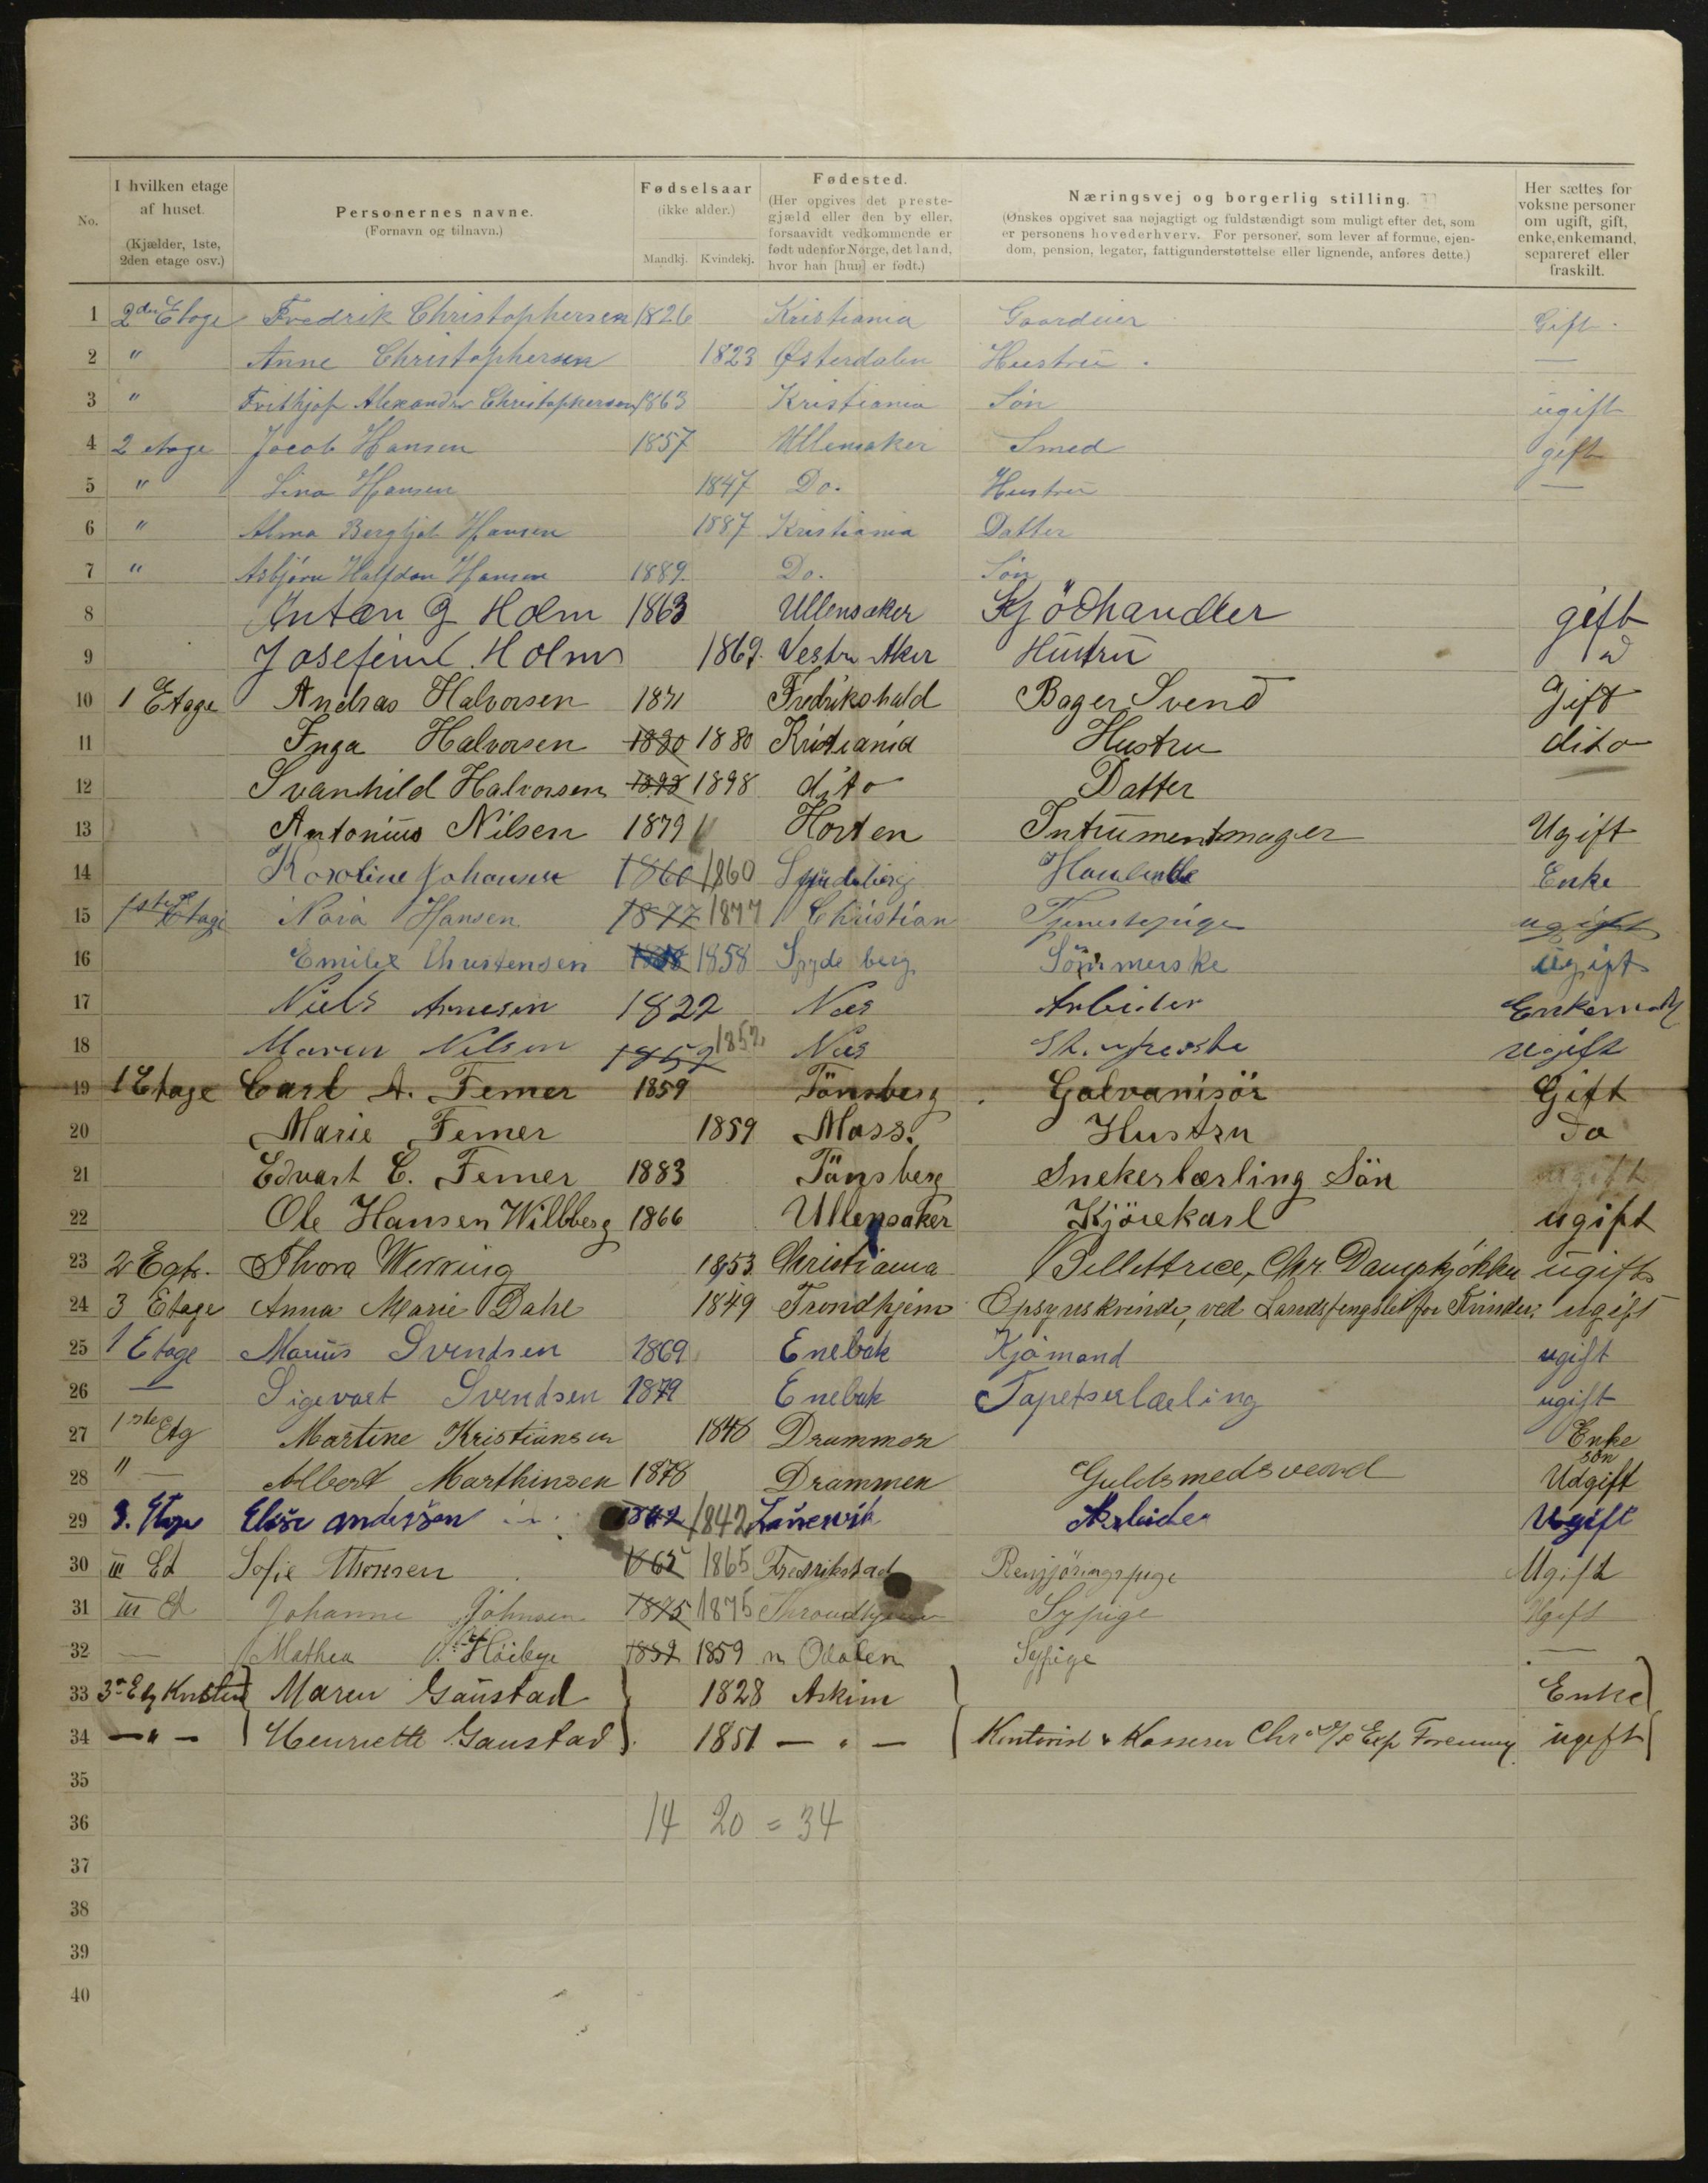 No.
I hvilken etage af huset.
(Kjælder, 1ste, 2den etage osv.)
Personernes navne.
(Fornavn og tilnavn.)
Fødselsaar
(ikke alder.)
Mandkj. Kvindekj.
Fødested.
(Her opgives det prestegjæld eller den by eller, forsaavidt vedkommende er født udenfor Norge, det land, hvor han [hun] er født.)
Næringsvej og borgerlig stilling.
(Ønskes opgivet saa nøjagtigt og fuldstændigt som muligt efter det, som er personens hovederhverv. For personer, som lever af formue, ejendom, pension, legater, fattigunderstøttelse eller lignende, anføres dette.)
Her sættes for voksne personer om ugift, gift, enke, enkemand, separeret eller fraskilt.
1 2den Etage Fredrik Christophersen 1826 Kristiania Gaardeier Gift
2 " Anne Christophersen 1823 Østerdalen Hustru —
3 " Frithjof Alexander Christophersen 1863 Kristiania Søn ugift
4 2 etage Jacob Hansen 1857 Ullensaker Smed gift
5 " Lina Hansen 1847 Do. Hustru —
6 " Alma Bergljot Hansen 1887 Kristiania Datter
7 " Asbjørn Halfdan Hansen 1889 Do. Søn
8 Anton G Holm 1863 Ullensaker Kjödhandler gift
9 Josefine Holm 1869 Vestre Aker Hustru
10 1 Etage Andras Halvorsen 1871 Fredrikshald Bager Svend Gift
11 Inga Halvorsen 1880 1880 Kristiania Hustru dito
12 Svanhild Halvorsen 1898 1898 dito Datter
13 Antonius Nilsen 1879 Horten Intrumentmager Ugift
14 Karoline Johansen 1860 1860 Spydeberg Enke
15 1ste Etage Nora Hansen 1877 1877 Christian Tjenestepige ugift
16 Emilie Christensen 1858 1858 Spydeberg Sömmerske ugift
17 Niels Arnesen 1822 Næs Arbeider Enkemand
18 Maren Nilsen 1852 1852 Næs ugift
19 1 Etage Carl A. Femer 1859 Tönsberg Galvanisör Gift
20 Marie Femer 1859 Moss. Hustru Do
21 Edvart C. Femer 1883 Tönsberg Snekerlærling Sön ugift
22 Ole Hansen Wilbberg 1866 Ullensaker Kjörekarl ugift
23 2 Egt. Thora Werring 1853 Christiania Billettrice, Chr. Dampkjökken ugift
24 3 Etage Anna Marie Dahl 1849 Trondhjem Opsynskvinde, ved Landsfengslet for Kvinder. ugift
25 1 Etage Marius Svendsen 1869 Enebak Kjømand ugift
26 — Sigevart Svendsen 1879 Enebak Tapetserlærling ugift
27 1ste Etg Martine Kristiansen 1848 Drammen Enke
28 " — Albert Marthinsen 1878 Drammen Guldsmedsvend søn Udgift
29 3. Etage Elise andersen 1842 1842 Laurvik Arbeider Ugift
30 III Et Sofie Thorsen 1865 1865 Fredrikstad Rengjöringspige Ugift
31 III Et Johanne Johnsen 1875 1875 Throndhjem Sypige Ugift
32 — Mathea Höibye 1859 1859 n Odalen Sypige —
33 3die Etg Maren Gaustad 1828 Askim Enke
34 — " — Henriette Gaustad 1851 — " — Kontorist & Kasserer Chr Exp Forening ugift
35
36 14 20 = 34
37
38
39
40